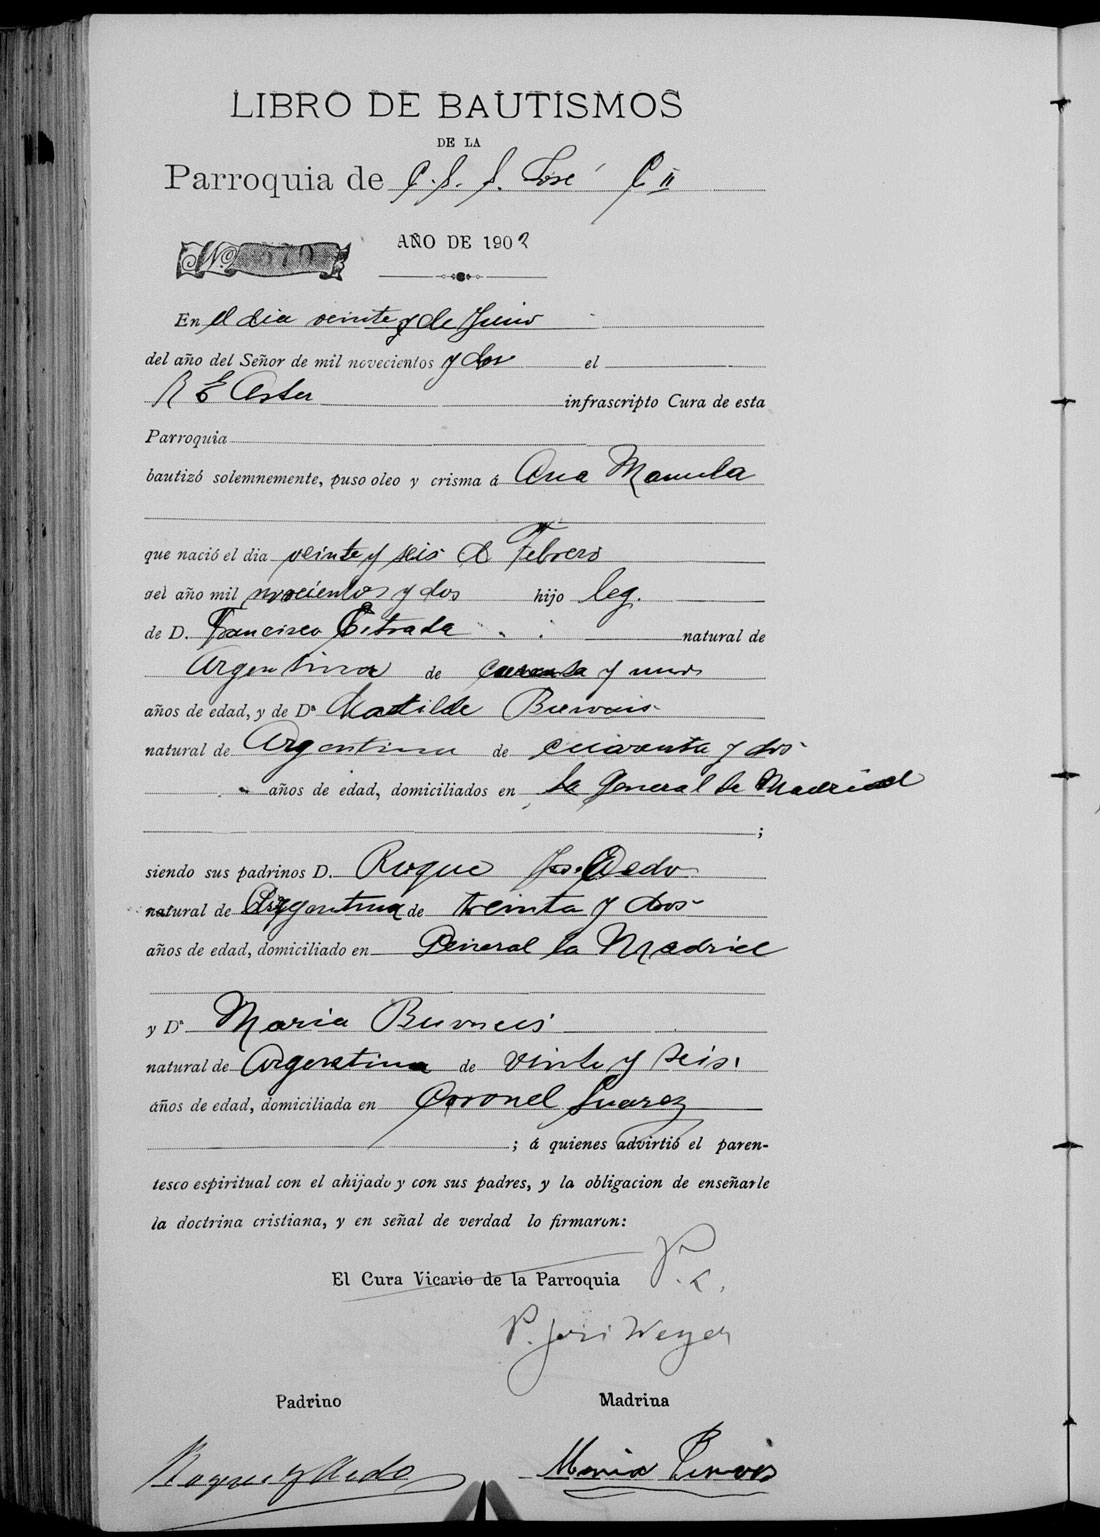 LIBRO DE BAUTISMOS
DE LA
Parroquia de C. S. S. José C II
AÑO DE 1902
No 570
En el dia veinte y de Junio
del año del Señor de mil novecientos y dos el
R E infrascripto Cura de esta
Parroquia
bautizó solemnemente, puso oleo y crisma á Ana Manuela
que nació el dia veinte y seis de Febrero
del año mil novecientos y dos hijo leg.
de D. Francisco Estrada natural de
Argentina de cuarenta y uno
años de edad, y de Da Matilde
natural de Argentina de cuarenta y dos
años de edad, domiciliados en la General la Madrid
;
siendo sus padrinos D. Roque Jos. Oedo
natural de Argentina de treinta y dos
años de edad, domiciliado en General la Madrid
y Da Maria
natural de Argentina de veinte y seis
años de edad, domiciliada en Coronel Suarez
; á quienes advirtió el paren-
tesco espiritual con el ahijado y con sus padres, y la obligacion de enseñarle
la doctrina cristiana, y en señal de verdad lo firmaron:
El Cura Vicario de la Parroquia
P. José Weyer
Padrino Madrina
Roque J Oedo Maria